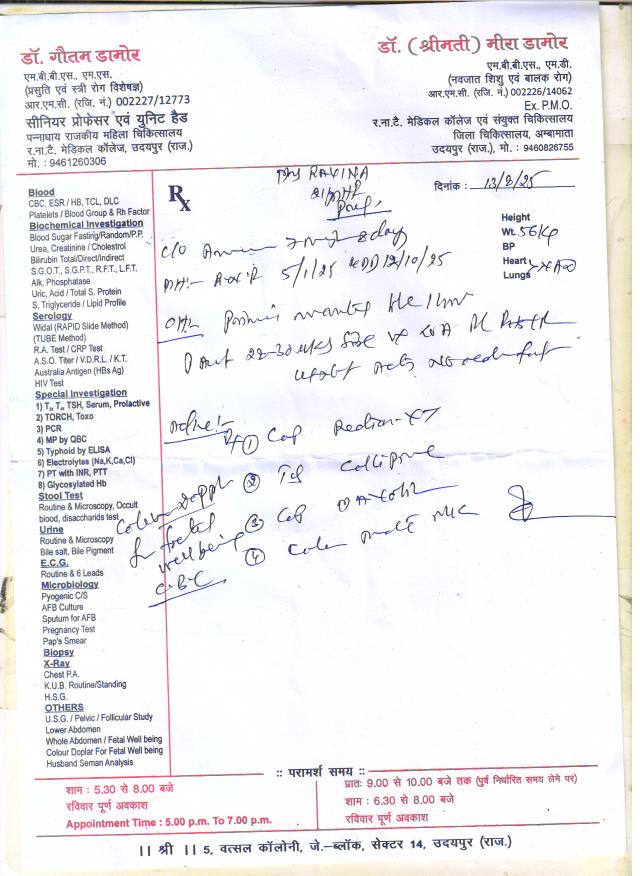 डॉ. गौतम डामोर
एम.बी.बी.एस., एम.एस.
(प्रसुति एवं स्त्री रोग विशेषज्ञ)
आर.एम.सी. (रजि. नं.) 002227/12773
सीनियर प्रोफेसर एवं युनिट हैड
पन्नाधाय राजकीय महिला चिकित्सालय
र.ना.टै. मेडिकल कॉलेज, उदयपुर (राज.)
मो. : 9461260306
डॉ. (श्रीमती) मीरा डामोर
एम.बी.बी.एस., एम.डी.
(नवजात शिशु एवं बालक रोग)
आर.एम.सी. (रजि. नं.) 002226/14062
Ex. P.M.O.
र.ना.टै. मेडिकल कॉलेज एवं संयुक्त चिकित्सालय
जिला चिकित्सालय, अम्बामाता
उदयपुर (राज.), मो. : 9460826755
Blood
CBC, ESR / HB, TCL, DLC
Platelets / Blood Group & Rh Factor
Biochemical Investigation
Blood Sugar Fasting/Random/P.P.
Urea, Creatinine / Cholestrol
Bilirubin Total/Direct/Indirect
S.G.O.T., S.G.P.T., R.F.T., L.F.T.
Alk, Phosphatase
Uric, Acid / Total S. Protein
S. Triglyceride / Lipid Profile
Serology
Widal (RAPID Slide Method)
(TUBE Method)
R.A. Test / CRP Test
A.S.O. Titer / V.D.R.L. / K.T.
Australia Antigen (HBs Ag)
HIV Test
Special Investigation
1) T₃, T₄, TSH, Serum, Prolactive
2) TORCH, Toxo
3) PCR
4) MP by QBC
5) Typhoid by ELISA
6) Electrolytes (Na,K,Ca,Cl)
7) PT with INR, PTT
8) Glycosylated Hb
Stool Test
Routine & Microscopy, Occult
blood, disaccharides test
Urine
Routine & Microscopy
Bile salt, Bile Pigment
E.C.G.
Routine & 6 Leads
Microbiology
Pyogenic C/S
AFB Culture
Sputum for AFB
Pregnancy Test
Pap's Smear
Biopsy
X-Ray
Chest P.A.
K.U.B. Routine/Standing
H.S.G.
OTHERS
U.S.G. / Pelvic / Follicular Study
Lower Abdomen
Whole Abdomen / Fetal Well being
Colour Doplar For Fetal Well being
Husband Seman Analysis
Rx
RAVINA
दिनांक : 13/8/25
Height
Wt. 56 Kg
BP
Heart
Lungs
C/O 8 days
5/1/25 EDD 12/10/25
Advice :-
① Cap
②
③ Cap
④
Colour Doppler
for foetal
wellbeing
C.B.C.
:: परामर्श समय ::
शाम : 5.30 से 8.00 बजे
रविवार पूर्ण अवकाश
Appointment Time : 5.00 p.m. To 7.00 p.m.
प्रातः 9.00 से 10.00 बजे तक (पुर्व निर्धारित समय लेने पर)
शाम : 6.30 से 8.00 बजे
रविवार पूर्ण अवकाश
।। श्री ।। 5, वत्सल कॉलोनी, जे.-ब्लॉक, सेक्टर 14, उदयपुर (राज.)